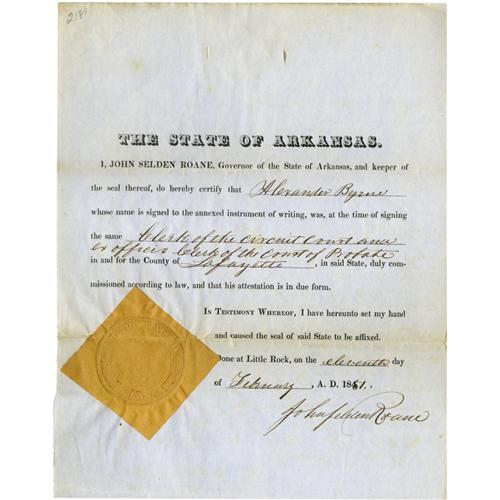 2181
THE STATE OF ARKANSAS.
I, JOHN SELDEN ROANE, Governor of the State of Arkansas, and keeper of
the seal thereof, do hereby certify that Alexander Byrne
whose name is signed to the annexed instrument of writing, was, at the time of signing
the same Clerk of the Circuit Court and
ex officio Clerk of the Court of Probate
in and for the County of Lafayette, in said State, duly com-
missioned according to law, and that his attestation is in due form.
In Testimony Whereof, I have hereunto set my hand
and caused the seal of said State to be affixed.
Done at Little Rock, on the eleventh day
of February, A. D. 1851.
John Selden Roane